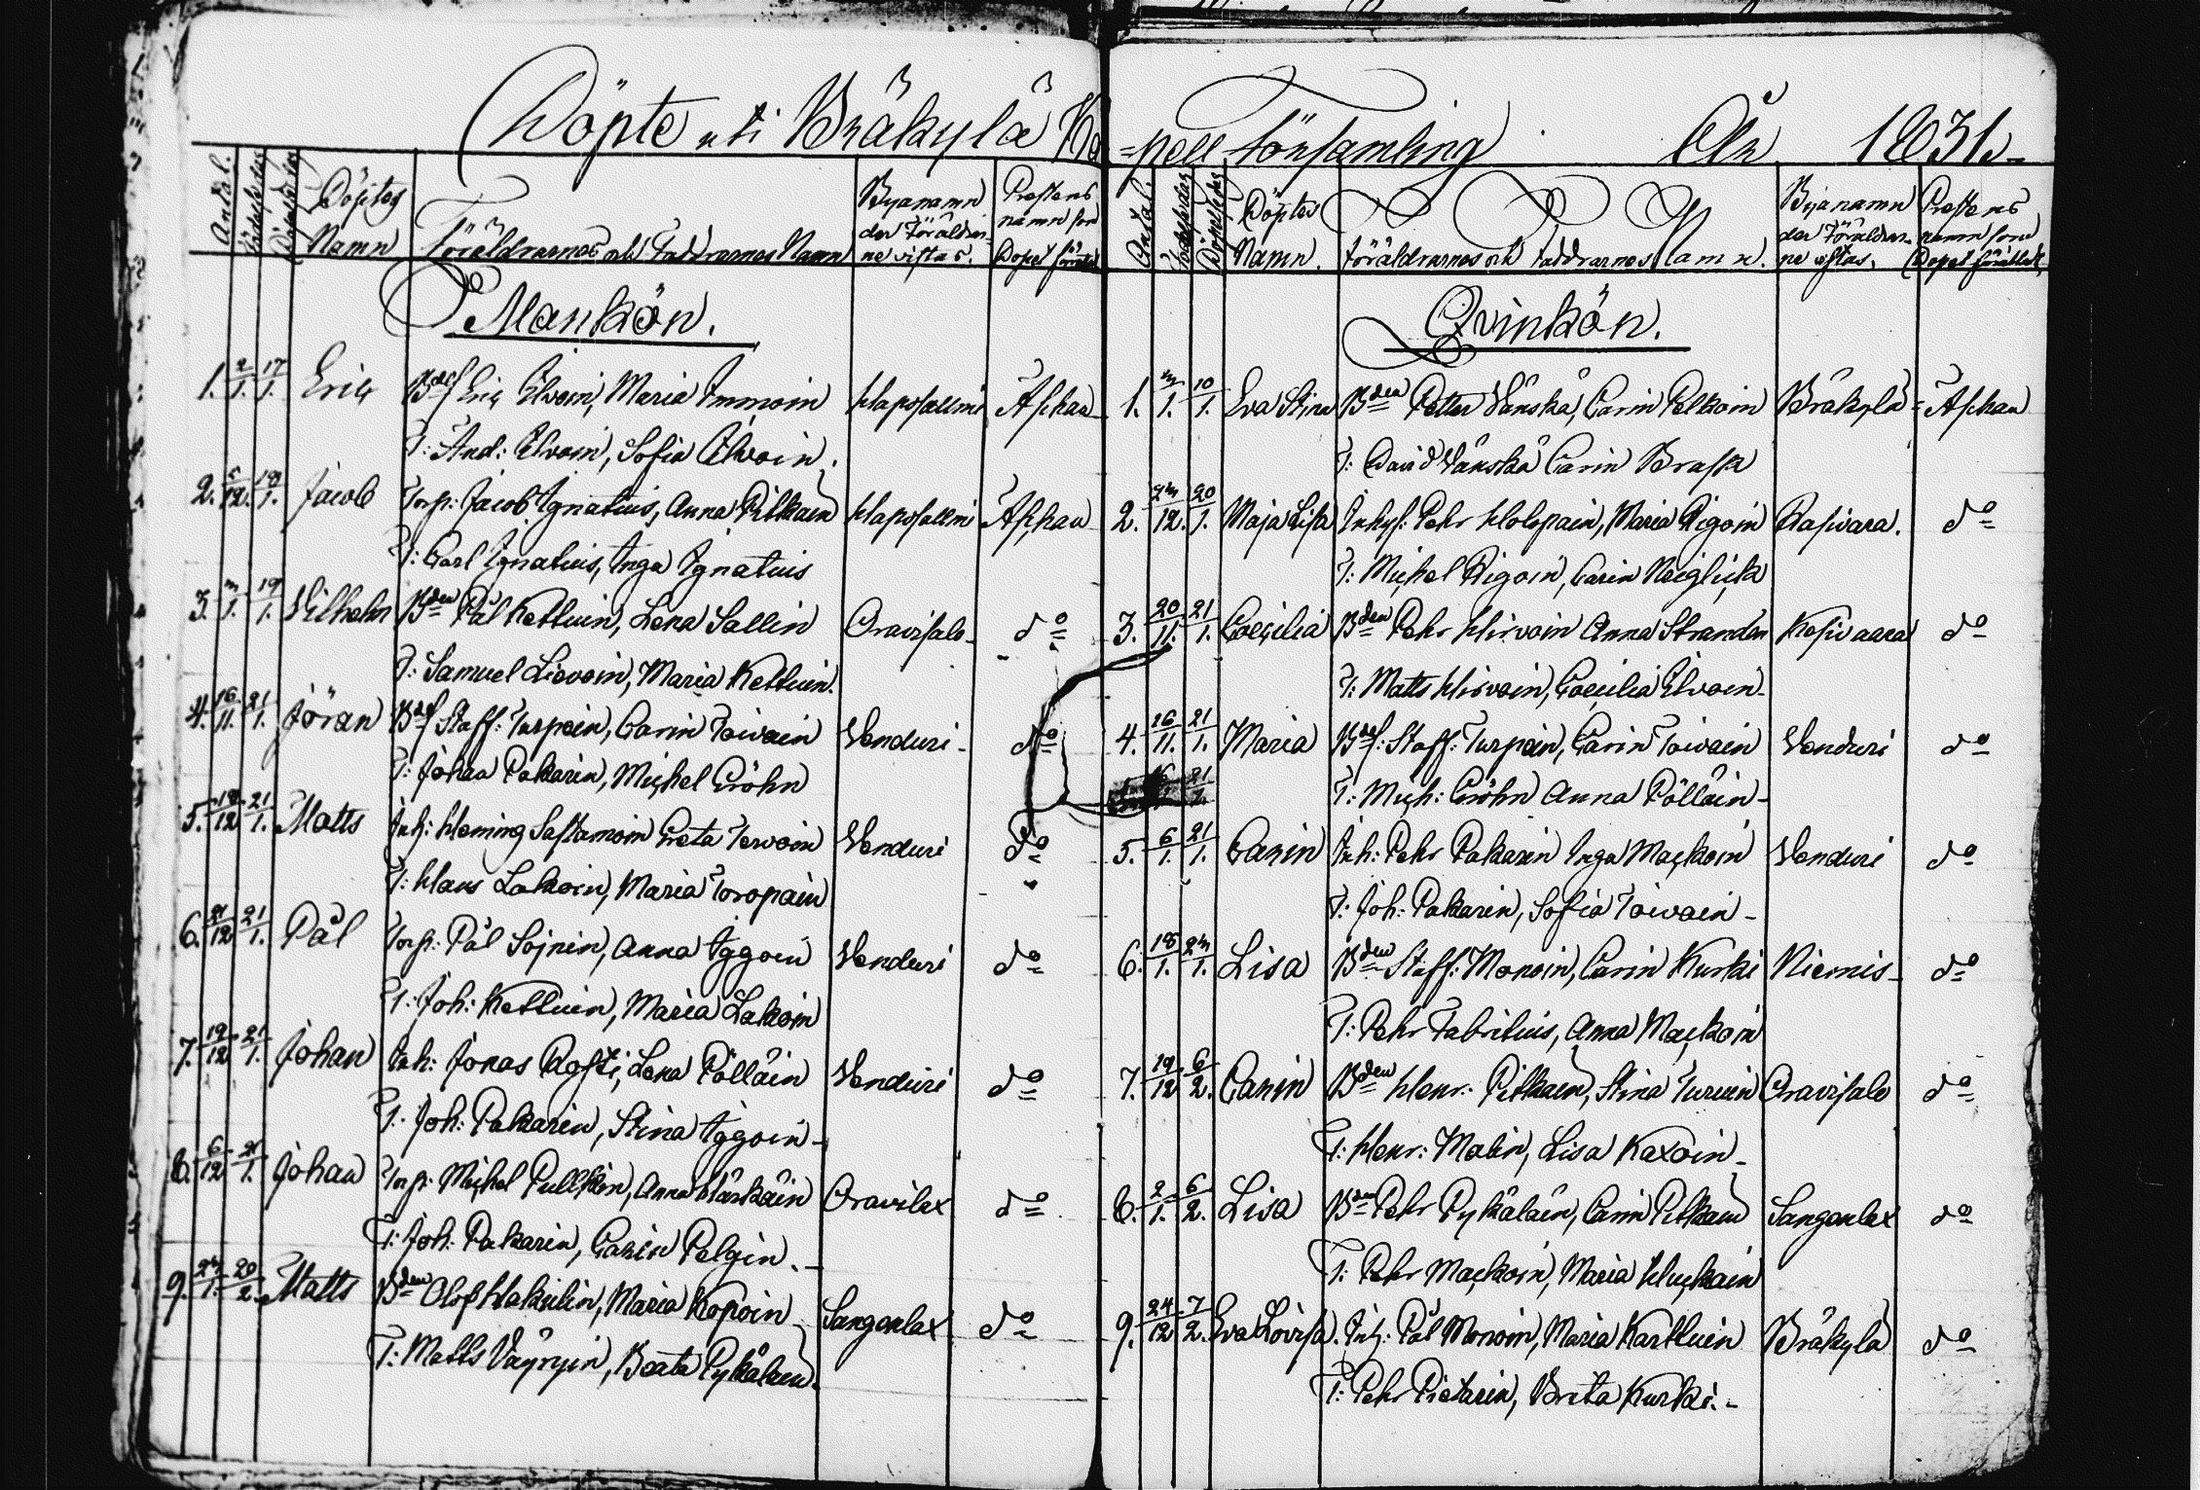 Döpte uti Bräkylä Ka-
Antal.
Födelsedag
Döpelsedag
Döptes Namn
Föräldrarnes och Faddrarnes Namn
Byanamn der Föräldrar-
ne vistas.
Prestens namn som
Dopet förrättat
Mankön.
1. 2/1. 17/1. Eric Bdes Eric Elvoin, Maria Immoin Haposallmi Äphau
T: And: Elvoin, Sofia Elvoin.
2. 5/12. 19/1. Jacob Torp: Jacob Ignatius, Anna Pitkäin Haposallmi Äphau
T: Carl Ignatius, Inga Ignatius
3. 3/1. 19/1. Vilhelm Bden Pål Kettuin, Lena Sallin Oravisalo do
T: Samuel Lievoin, Maria Kettuin.
4. 16/11. 21/1. Jöran Bdes Staff: Turpein, Carin Toivain Venduri do
T: Johan Pakarin, Michel Gröhn
5. 18/12 21/1. Matts Inh: Heming Sastamoin Greta Tervoin Venduri do
T: Klaus Lakoin, Maria Toropain
6. 21/12 21/1. Pål Torp: Pål Soinin, Anna Iggoin Venduri do
T: Joh: Kettuin, Maria Lakoin
7. 19/12 21/1. Johan Inh: Jonas Rosti, Lena Pölläin Venduri do
T: Joh: Pakarin, Stina Iggoin
8. 6/12 21/1. Johan Torp: Michel Pullkin, Anna Härkäin Oravilax do
T: Joh: Pakarin, Carin Pelgin.
9. 24/1. 20/2. Matts Bden Olof Hakulin, Maria Kopoin Sangenlax do
T: Matts Väyryin, Beata Pykäläin.
-pell Församling År 1831.
Antal.
Födelsedag
Döpelsedag
Döptes Namn.
Föräldrarnes och Faddrarnes Namn.
Byanamn der Föräldrar-
ne vistas.
Prestens namn som
Dopet förrättat
Qvinkön.
1. 3/1. 10/1. Eva Stina Bden Petter Vänskä, Carin Pelkoin Bräkylä Äphau
T: David Vänskä Carin Brask
2. 23/12. 20/1. Maja Lisa Inhys: Pehr Holopain, Maria Rigoin Rasivara. do
T: Michel Rigoin, Carin Neiglick
3. 20/11. 21/1. Coecilia Bden Pehr Hirvoin Anna Strandén Kesivaara do
T: Matts Hirvoin, Coecilia Elvoin
4. 16/11. 21/1. Maria Bdes: Staff: Turpein, Carin Toivain Venduri do
T: Mich: Gröhn Anna Pölläin
5. 6/1. 21/1. Carin Inh: Pehr Pakarin Inga Mackoin Venduri do
T: Joh: Pakarin, Sofia Toivain
6. 18/1. 23/1. Lisa Bden Staff: Monoin, Carin Kurki Niernis do
T: Pehr Fabritius, Anna Mackoin
7. 19/12 6/2. Carin Bden Henr: Pitkäin, Stina Turuin Oravisalo do
T: Henr: Malin, Lisa Kaxoin
8. 2/1. 6/2. Lisa Bden Pehr Pykäläin, Carin Pitkäin Sangenlax do
T: Pehr Mackoin, Maria Huckain
9. 24/12 7/2. Eva Lovisa. Inh: Pål Monoin, Maria Karttuin Bräkylä do
T: Pehr Pietarin, Brita Kurki.